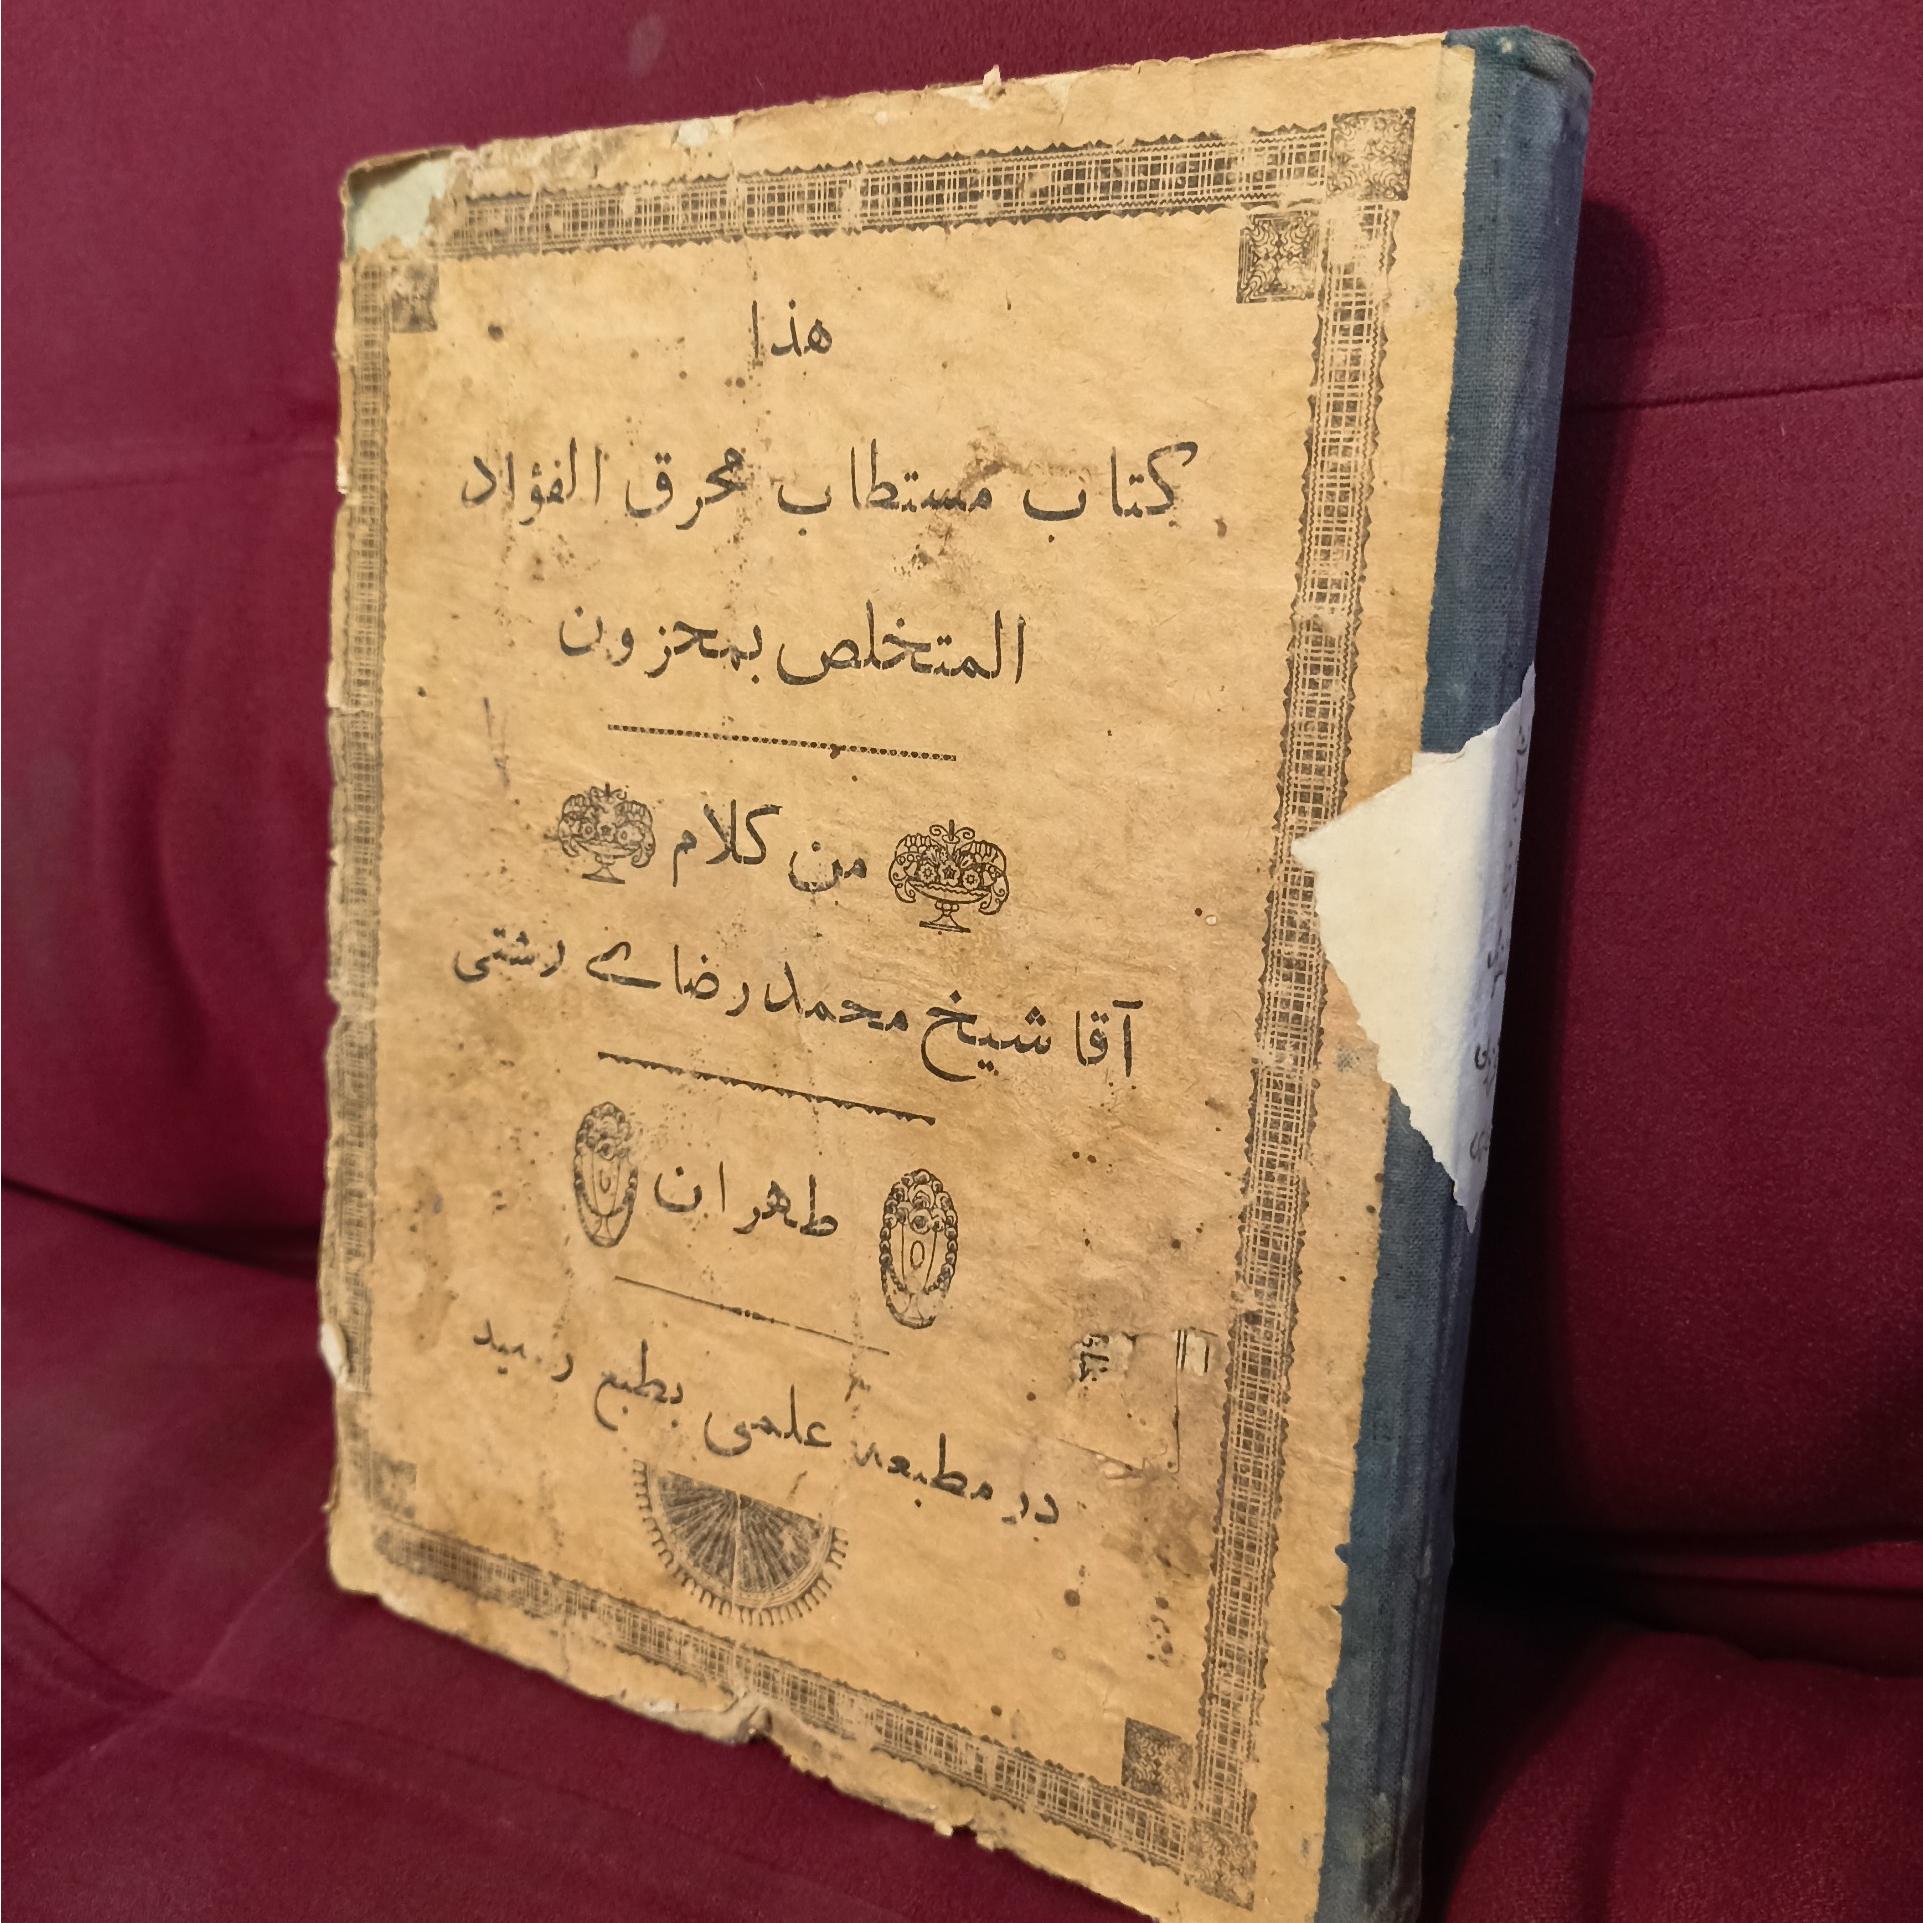 هذا
کتاب مستطاب محرق الفؤاد
المتخلص بمحزون
من کلام
آقا شیخ محمد رضاے رشتی
طهران
در مطبعه علمی بطبع رسید